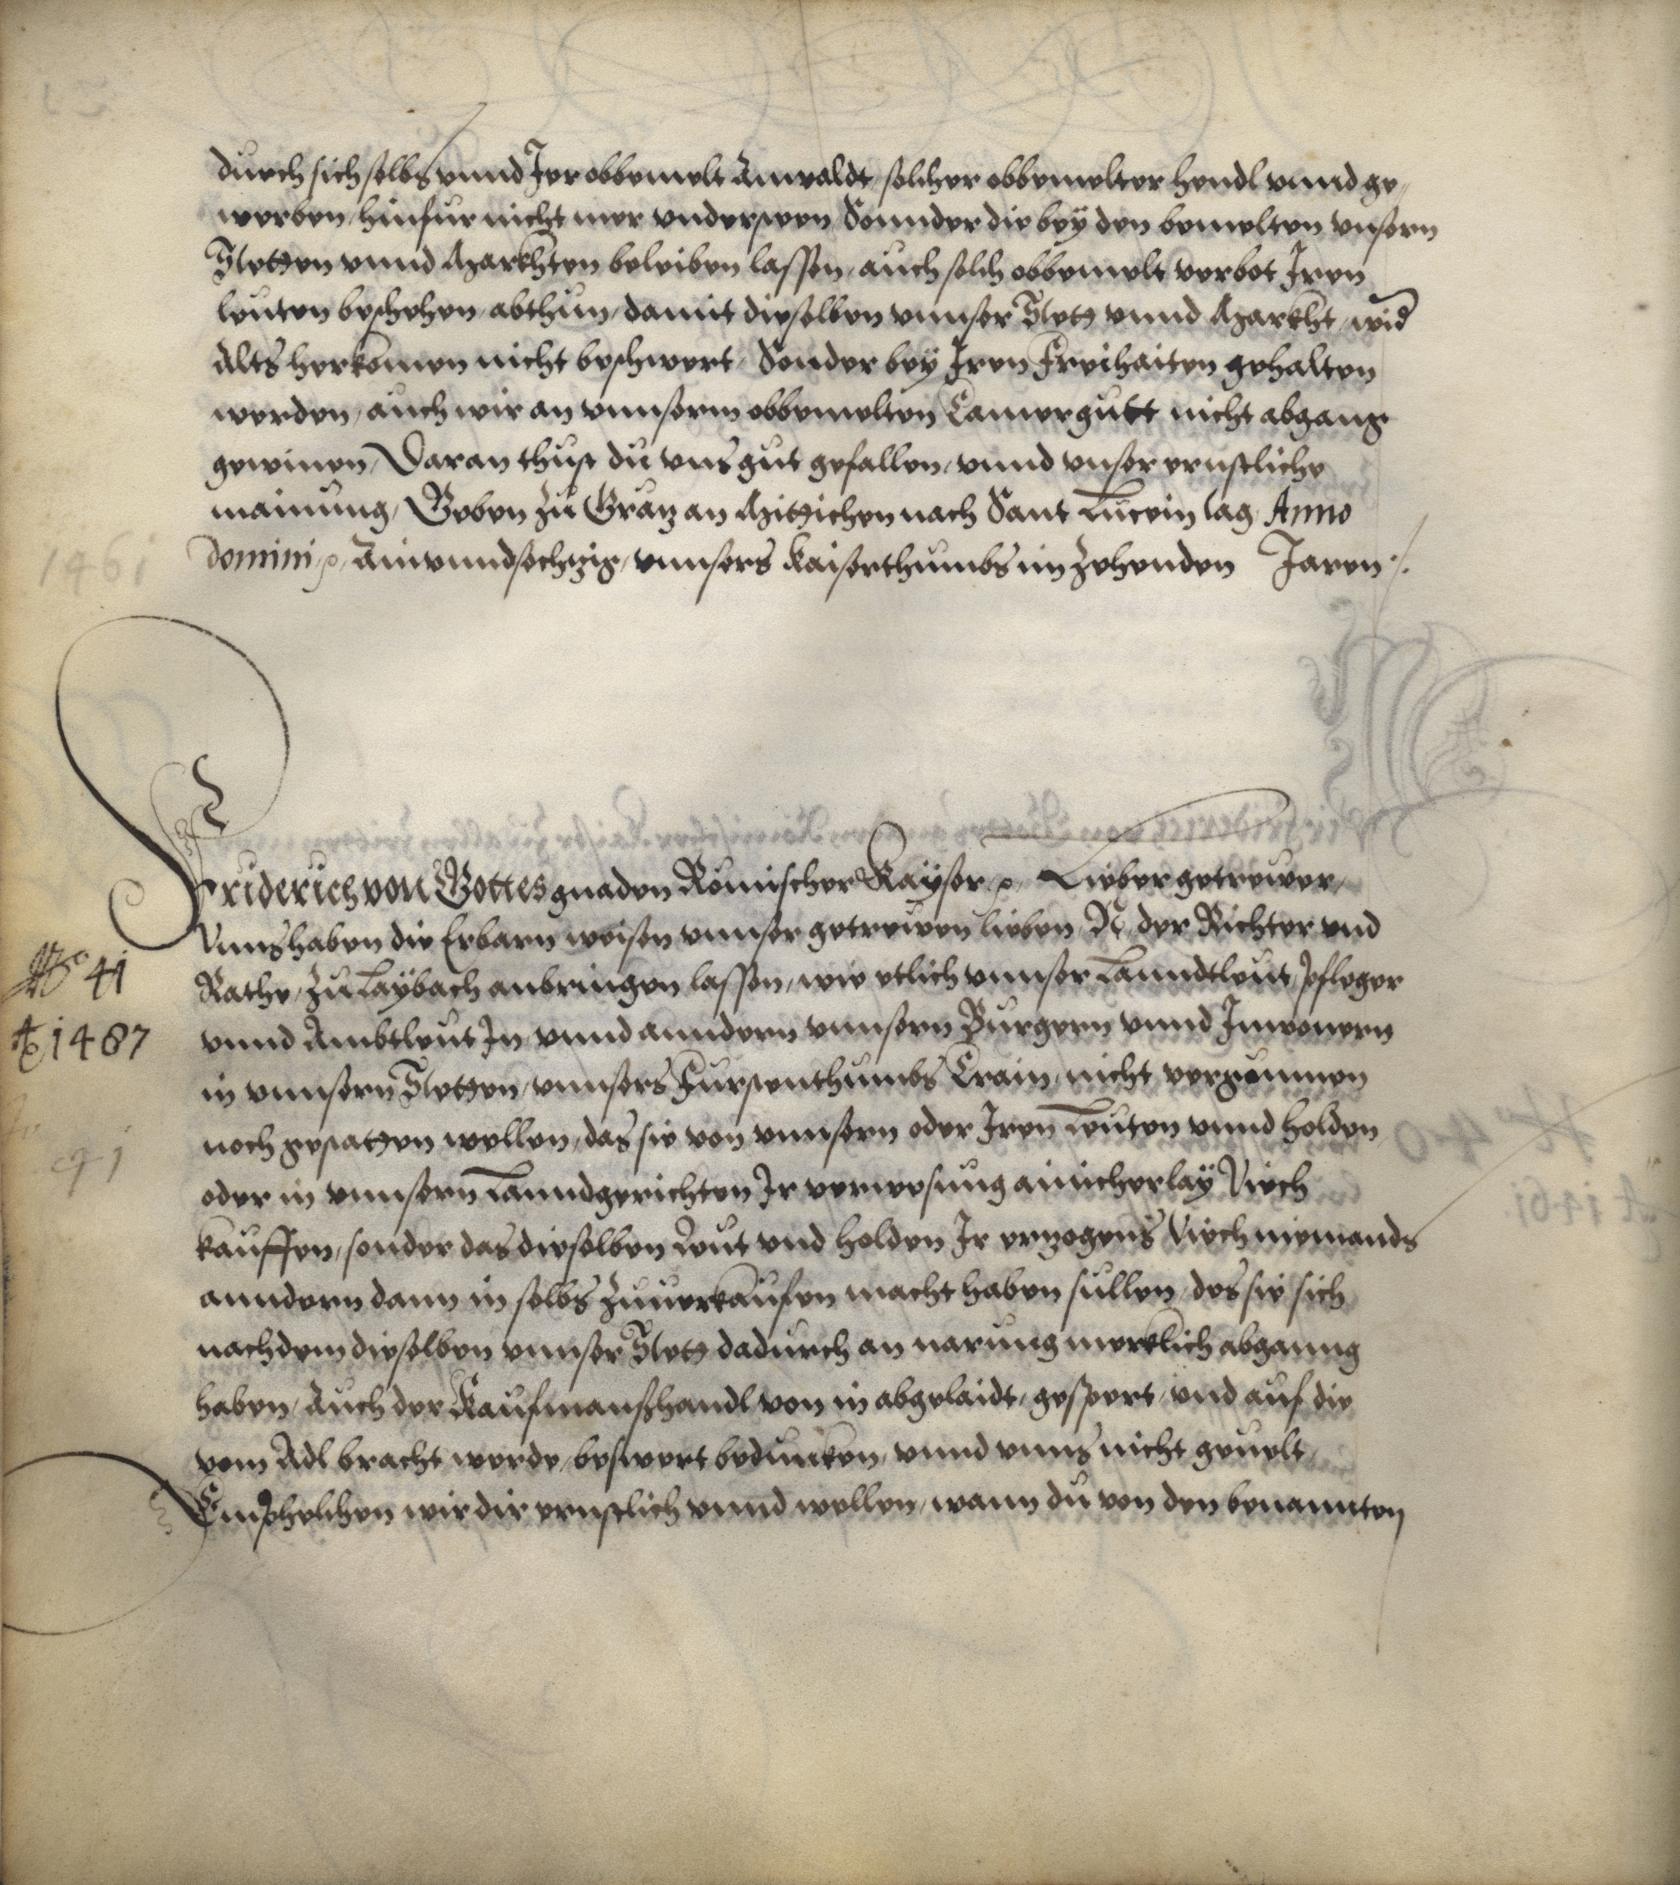 durch sich selbs vnnd Jer obbemelt Anwaldt, solcher obbemelter hendl vnnd ge,
werben, hinfur nicht mer vndersteen Sonnder die beÿ den bemelten vnsern
Stetten vnnd Markhten beleiben lassen, auch solch obbemelt verbot Jren
leuten beschehen, abthun, damit dieselben vnnser Stett vnnd Markht, wid
Alts herkomen nicht beschwert, Sonder beÿ Jren Freihaiten gehalten
werden, auch wir an vnnserm obbemelten Camergutt nicht abgang
gewinen, Daran thust du vns gut gefallen, vnnd vnser ernstliche
mainung, Geben zu Gratz an Mittichen nach Sant Lucein tag, Anno
domini ꝛc, Ainvnndsechtzig, vnnsers Kaiserthumbs im Zehenden Jaren ./.
1461
Friderich von Gottes gnaden Römischer Kaÿser ꝛc, Lieber getrewer,
Vnns haben die Erbarn weisen vnnser getrewen lieben N. der Richter vnd
Rathe, zu Laÿbach anbringen lassen, wie etlich vnnser Lanndtleut, Pfleger
No 41
vnnd Ambtleut Jn, vnnd anndern vnnsern Burgern vnnd Jnwonern
A 1487
in vnnsern Stetten, vnnsers Furstenthumbs Crain, nicht vergönnen
noch gestatten wellen, das sie von vnnsern oder Jren Leuten vnnd holden,
oder in vnnsern Lanndgerichten Jr verwesung ainicherlaÿ Viech
kauffen, sonder das dieselben Leut vnd holden Jr erzogens Viech niemands
anndern dann in selbs zuuerkaufen macht haben sullen, des sie sich
nachdem dieselben vnnser Stett dadurch an narung merklich abganng
haben, Auch der Kaufmanßhandl von in abgelaidt, gesperrt, vnd auf die
vom Adl bracht werde, beswert bedunken, vnnd vnns nicht geuelt,
Emphelchen wir dir ernstlich vnnd wellen, wann du von den benannten